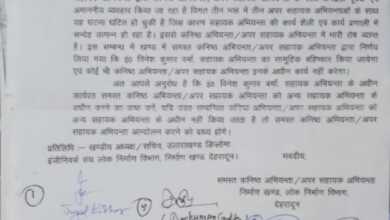 अमाननीय व्यवहार किया जा रहा है विगत तीन माह में तीन अपर सहायक अभियन्ताओं के साथ
यह घटना घटित हो चुकी है जिस कारण सहायक अभियन्ता की कार्य शैली एवं कार्य प्रणाली में
सन्देह उत्पन्न हो रहा है। इससे कनिष्ठ अभियन्ता/अपर सहायक अभियन्ता में भारी रोष व्याप्त
है। इस सम्बन्ध में खण्ड में समस्त कनिष्ठ अभियन्ता/अपर सहायक अभियन्ता द्वारा निर्णय
लिया गया कि इं0 दिनेश कुमार वर्मा, सहायक अभियन्ता का सामूहिक बहिष्कार किया जायेगा
एवं कोई भी कनिष्ठ अभियन्ता/अपर सहायक अभियन्ता इनके आधीन कार्य नहीं करेगा।
अत आपसे अनुरोध है कि इं0 दिनेश कुमार वर्मा, सहायक अभियन्ता के अधीन
कार्यरत समस्त कनिष्ठ अभियन्ता/अपर सहायक अभियन्ता को अन्य सहायक अभियन्ता के
अधीन करने का कष्ट करें, यदि उक्त सम्बन्धित कनिष्ठ अभियन्ता/अपर सहायक अभियन्ता को
अन्य सहायक अभियन्ता के अधीन नहीं किया जाता है तो समस्त कनिष्ठ अभियन्ता/अपर
सहायक अभियन्ता आन्दोलन करने को बाध्य होंगे।
प्रतिलिपि – खण्डीय अध्यक्ष/सचिव, उत्तराखण्ड डिप्लोमा
इंजीनियर्स संघ लोक निर्माण विभाग, निर्माण खण्ड, देहरादून।
भवदीय,
समस्त कनिष्ठ अभियन्ता/अपर सहायक अभियन्ता
निर्माण खण्ड, लोक निर्माण विभाग,
देहरादून